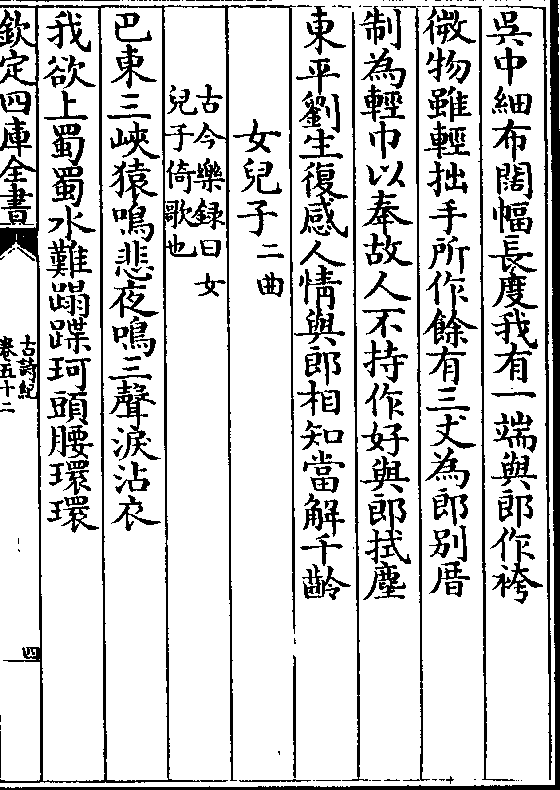 吳中細布闊幅長度我有一端與郎作袴
微物雖輕拙手所作餘有三丈為郎別厝
制為輕巾以奉故人不持作好與郎拭塵
東平劉生復感人情與郎相知當解千齡
女兒子二曲
古今樂録曰女
兒子倚歌也
巴東三峽猿鳴悲夜鳴三聲淚沾衣
我欲上蜀蜀水難蹋蹀珂頭腰環環
欽定四庫全書
古詩紀
卷五十二
四